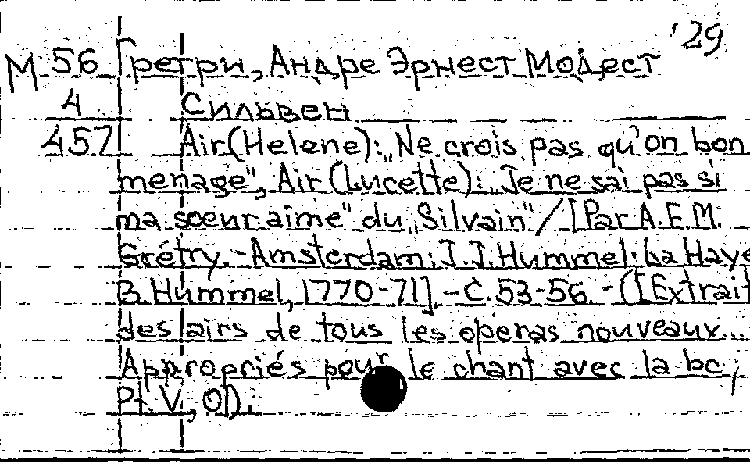 '29
М 56 Гретри, Андре Эрнест Модест
4 Сильвен
457 Air(Helene): „Ne crois pas qu'on bon
menage", Air (Lucette): „Je ne sai pas si
ma soeur aime" du „Silvain" / [Par A.E.M.
Grétry. - Amsterdam: J.J. Hummel: La Haye
B. Hummel, 1770-71]. - C.53-56. - ([Extrait
des airs de tous les operas nouveaux...
Appropriés pour le chant avec la bc;
Pt. V, 01).